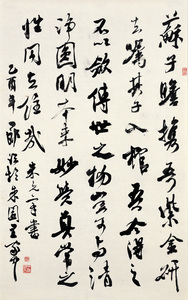 蘇子瞻攜吾紫金研
去囑其子入棺吾今得之
不以斂傳世之物豈可与清
淨圓明本來妙覺真常之
性同去住哉
乙酉年